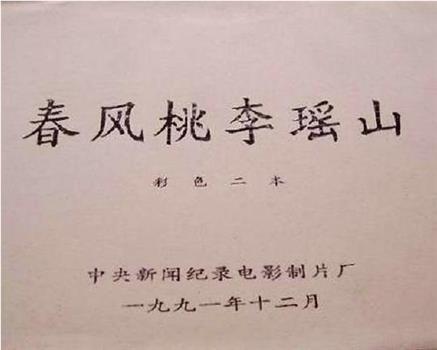 春风桃李瑶山
彩色二本
中央新闻纪录电影制片厂
一九九一年十二月